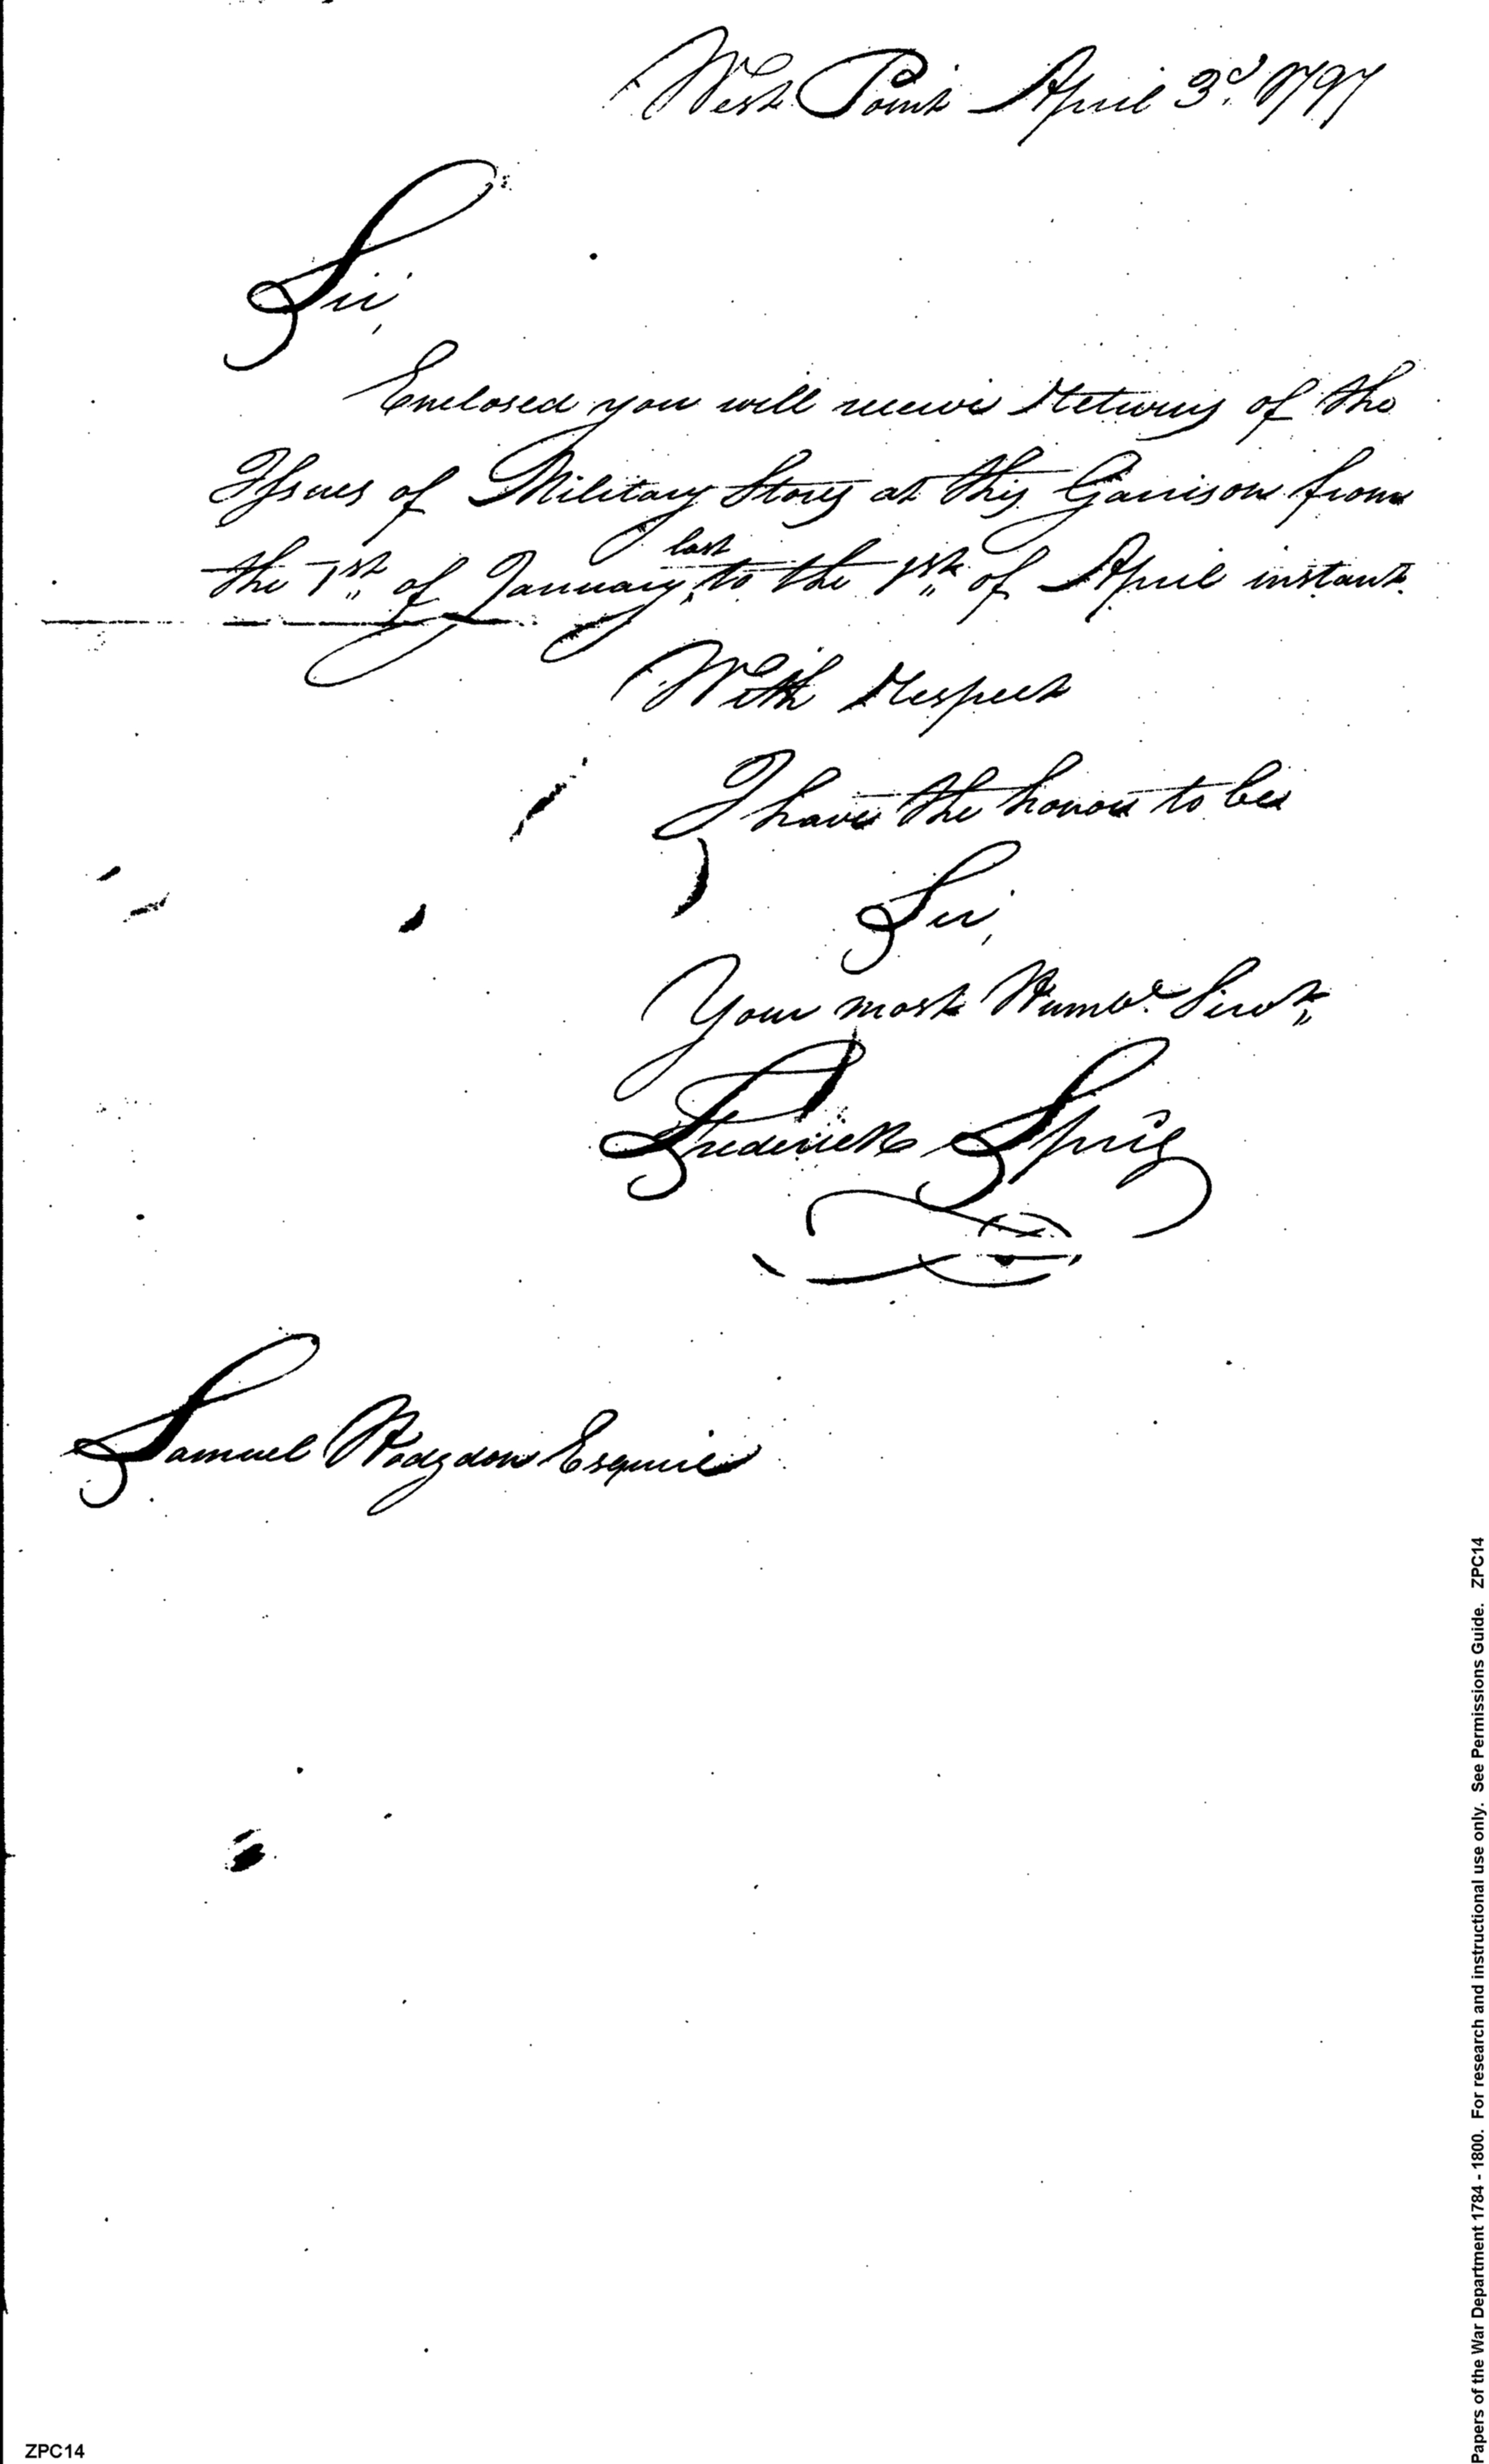 West Point April 3d. 1797
Sir,
Enclosed you will receive Returns of the
Issues of Military Stores at this Garrison from
the 1st of January last to the 1st of April instant.
With Respect
I have the honor to be
Sir,
Your most Humbe. Servt,
Frederick Spring
Samuel Hodgdon Esquire
Papers of the War Department 1784 - 1800. For research and instructional use only. See Permissions Guide. ZPC14
ZPC14